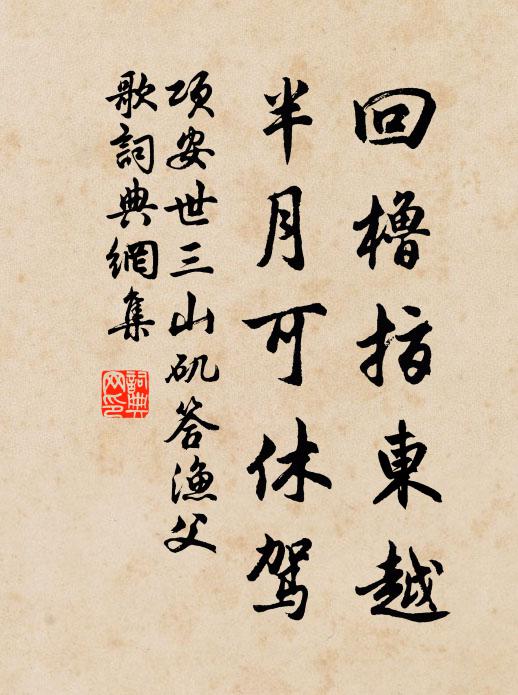 回櫓指東越
半月可休駕
項安世三山矶答漁父
歌詞典網集
詞典
网印